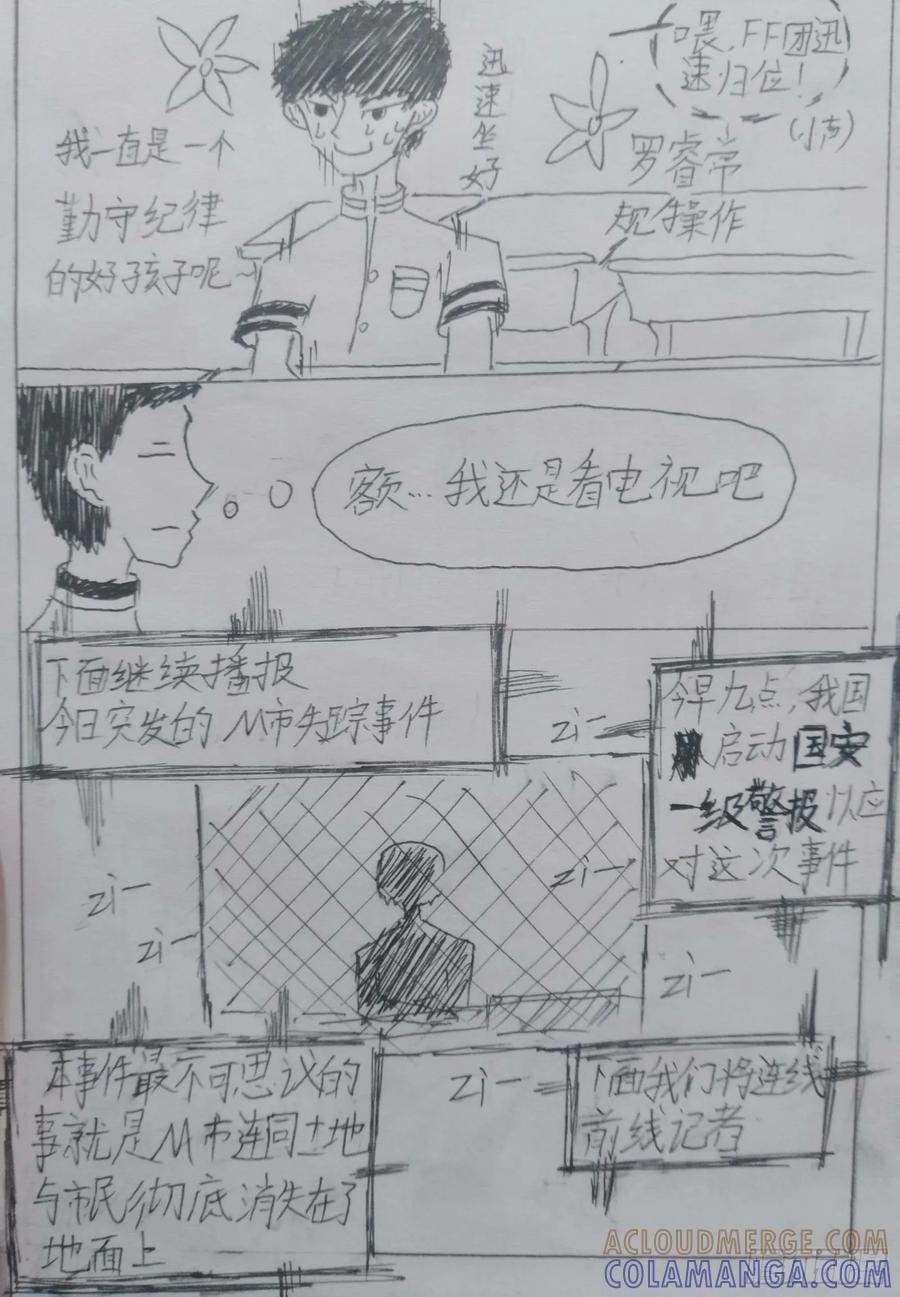 喂，FF团迅
速归位！
（小声）
迅速坐好
我一直是一个
勤守纪律
的好孩子呢~
罗睿常
规操作
额…我还是看电视吧
下面继续播报
今日突发的M市失踪事件
zi一
今早九点，我国
启动国安
一级警报以应
对这次事件
zi一
zi一
zi一
zi一
本事件最不可思议的
事就是M市连同土地
与市民彻底消失在了
地面上
zi一
下面我们将连线
前线记者
ACLOUDMERGE.COM
COLAMANGA.COM